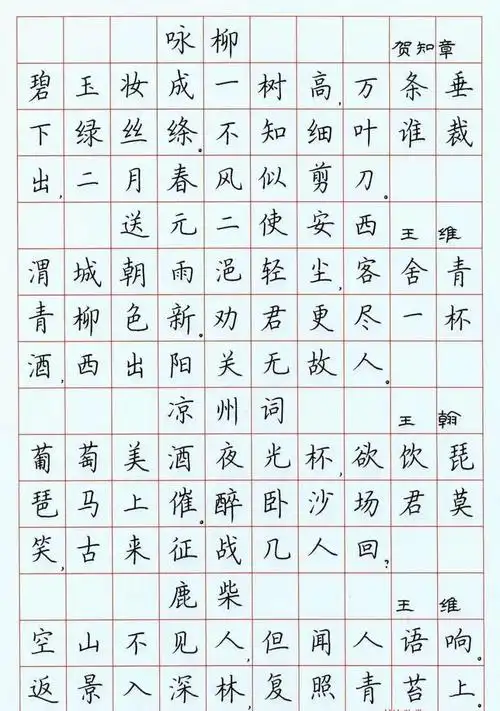 咏柳 贺知章
碧玉妆成一树高,万条垂
下绿丝绦。不知细叶谁裁
出,二月春风似剪刀。
送元二使安西 王维
渭城朝雨浥轻尘,客舍青
青柳色新。劝君更尽一杯
酒,西出阳关无故人。
凉州词 王翰
葡萄美酒夜光杯,欲饮琵
琶马上催。醉卧沙场君莫
笑,古来征战几人回?
鹿柴 王维
空山不见人,但闻人语响。
返景入深林,复照青苔上。